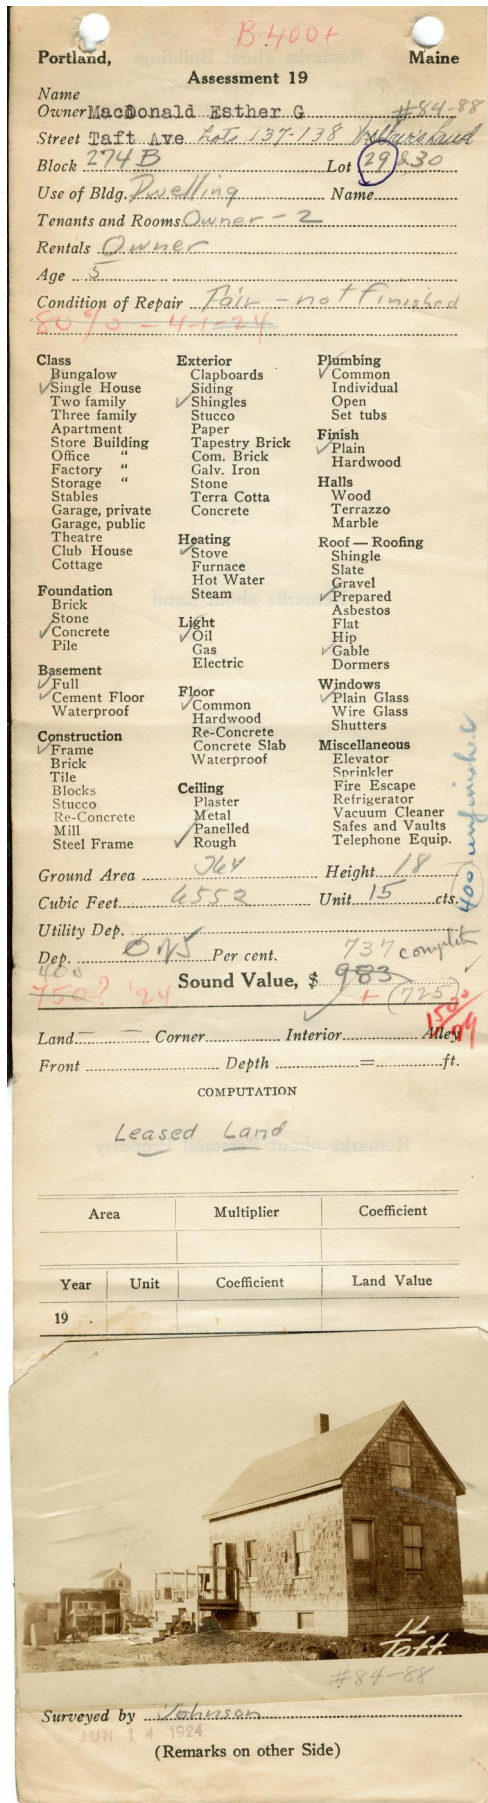 B 400+
Portland, Maine
Assessment 19
Name
Owner MacDonald Esther G #84-88
Street Taft Ave Lots 137-138
Block 274 B Lot 29 & 30
Use of Bldg. Dwelling Name
Tenants and Rooms Owner - 2
Rentals Owner
Age 5
Condition of Repair Fair - not finished
80% - 4-1-24
Class
Bungalow
✓ Single House
Two family
Three family
Apartment
Store Building
Office "
Factory "
Storage "
Stables
Garage, private
Garage, public
Theatre
Club House
Cottage
Foundation
Brick
Stone
✓ Concrete
Pile
Basement
✓ Full
✓ Cement Floor
Waterproof
Construction
✓ Frame
Brick
Tile
Blocks
Stucco
Re-Concrete
Mill
Steel Frame
Exterior
Clapboards
Siding
✓ Shingles
Stucco
Paper
Tapestry Brick
Com. Brick
Galv. Iron
Stone
Terra Cotta
Concrete
Heating
✓ Stove
Furnace
Hot Water
Steam
Light
✓ Oil
Gas
Electric
Floor
✓ Common
Hardwood
Re-Concrete
Concrete Slab
Waterproof
Ceiling
Plaster
Metal
✓ Panelled
✓ Rough
Plumbing
✓ Common
Individual
Open
Set tubs
Finish
✓ Plain
Hardwood
Halls
Wood
Terrazzo
Marble
Roof — Roofing
Shingle
Slate
Gravel
✓ Prepared
Asbestos
Flat
Hip
✓ Gable
Dormers
Windows
✓ Plain Glass
Wire Glass
Shutters
Miscellaneous
Elevator
Sprinkler
Fire Escape
Refrigerator
Vacuum Cleaner
Safes and Vaults
Telephone Equip.
400 unfinished
Ground Area 364 Height 18
Cubic Feet 6552 Unit 15 cts.
Utility Dep.
Dep. Per cent. 737 complete
400
Sound Value, $ 983
750? '24 + (725)
1500
Land Corner Interior Alley
Front Depth = ft.
COMPUTATION
Leased Land
Area Multiplier Coefficient
Year Unit Coefficient Land Value
19 .
Taft.
#84-88
Surveyed by Johnson
JUN 14 1924
(Remarks on other Side)